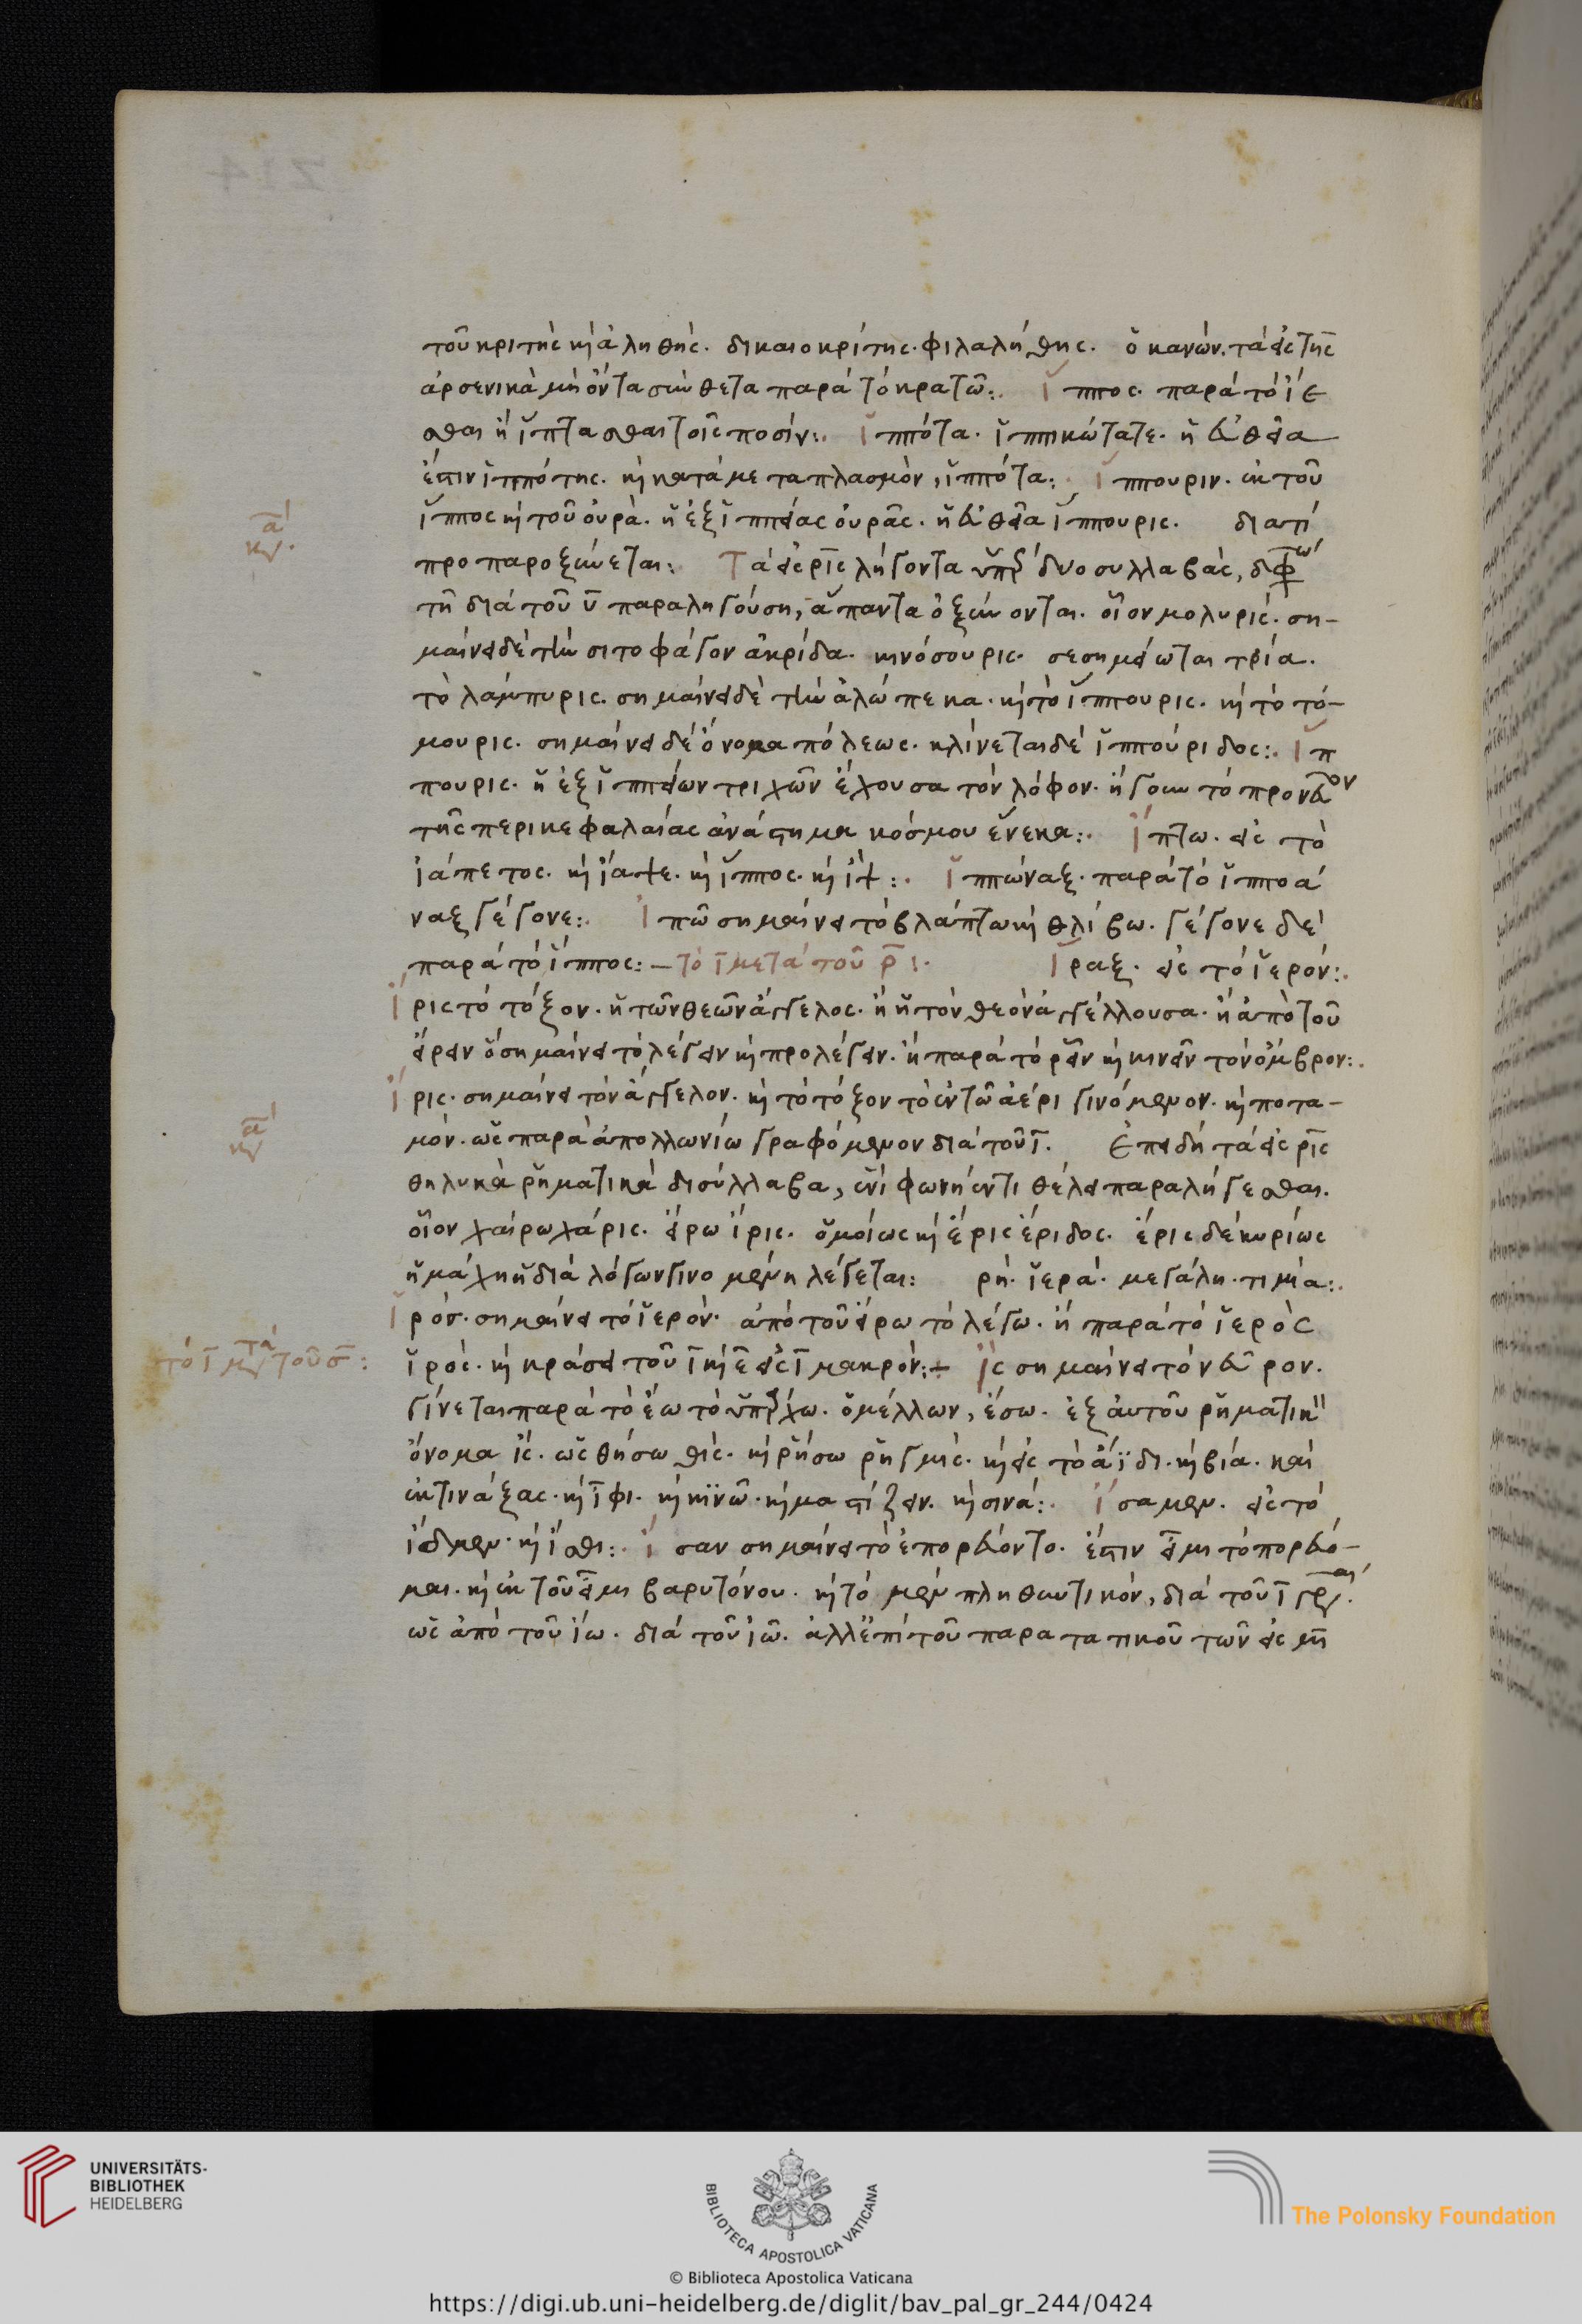 τοῦ κριτὴς κ̀ ἀληθής. δικαιοκρίτης. φιλαλήθης. ὁ κανών. τὰ εἰς της
ἀρσενικὰ μὴ ὄντα σύνθετα παρὰ τὸ κρατῶ:. ἵππος. παρὰ τὸ ἵε
σθαι ἢ ἵπτασθαι τοῖς ποσίν:. ἱππότα. ἱππικώτατε. ἡ εὐθεῖα
ἐστὶν ἱππότης. κ̀ κατὰ μεταπλασμὸν, ἱππότα:. ἵππουριν. ἐκ τοῦ
ἵππος κ̀ τοῦ οὐρά. ἡ ἐξ ἱππείας οὐρᾶς. ἡ εὐθεῖα ἵππουρις. διατί
α
κν.
προπαροξύνεται: Τὰ εἰς ρις λήγοντα ὑπὲρ δύο συλλαβάς,
τῆ διὰ τοῦ υ παραληγούση, ἅπαντα ὀξύνονται. οἷον μολυρίς. ση-
μαίνει δὲ τὴν σιτοφάγον ἀκρίδα. κινόσουρις. σεσημείωται τρία.
τὸ λάμπυρις. σημαίνει δὲ τὴν ἀλώπεκα. κ̀ τὸ ἵππουρις. κ̀ τὸ τό-
μουρις. σημαίνει δὲ ὄνομα πόλεως. κλίνεται δὲ ἱππούριδος:. ἵπ
πουρις. ἡ ἐξ ἱππείων τριχῶν ἔχουσα τὸν λόφον. ἤγουν τὸ προνεῦον
τῆς περικεφαλαίας ἀνάστημα κόσμου ἕνεκα:. ἵπτω. εἰς τὸ
ἰάπετος. κ̀ ἴαψε. κ̀ ἵππος. κ̀ ἴψ:. ἱππώναξ. παρὰ τὸ ἵππο ἄ
ναξ γέγονε:. ἰπῶ σημαίνει τὸ βλάπτω κ̀ θλίβω. γέγονε δὲ
παρὰ τὸ ἵππος:- τὸ ι μετὰ τοῦ ρ:. ἵραξ. εἰς τὸ ἱερόν:.
ἶρις τὸ τόξον. ἡ τῶν θεῶν ἄγγελος. ἢ ἡ τὸν θεὸν ἀγγέλλουσα. ἢ ἀπὸ τοῦ
εἴρειν ὃ σημαίνει τὸ λέγειν κ̀ προλέγειν. ἢ παρὰ τὸ ῥεῖν κ̀ κινεῖν τὸν ὄμβρον:.
ἶρις. σημαίνει τὸν ἄγγελον. κ̀ τὸ τόξον τὸ ἐν τῶ ἀέρι γινόμενον. κ̀ ποτα-
α
κν
μόν. ὡς παρὰ ἀπολλωνίω γραφόμενον διὰ τοῦ ι. Ἐπειδὴ τὰ εἰς ρις
θηλυκὰ ῥηματικὰ δισύλλαβα, ἑνὶ φωνήεντι θέλει παραλήγεσθαι.
οἷον χαίρω χάρις. εἴρω ἶρις. ὁμοίως κ̀ ἔρις ἔριδος. ἔρις δὲ κυρίως
ἡ μάχη ἡ διὰ λόγων γινομένη λέγεται: ρή. ἱερά. μεγάλη. τιμία:.
ἱρόν. σημαίνει τὸ ἱερόν. ἀπὸ τοῦ εἴρω τὸ λέγω. ἢ παρὰ τὸ ἱερὸς
τὸ ι μετὰ τοῦ σ:
ἱρός. κ̀ κράσει τοῦ ι κ̀ ε εἰς ι μακρόν:- ἲς σημαίνει τὸ νεῦρον.
γίνεται παρὰ τὸ ἔω τὸ ὑπάρχω. ὁ μέλλων, ἔσω. ἐξ αὐτοῦ ῥηματικὸν
ὄνομα ἴς. ὡς θήσω θίς. κ̀ ῥήσω ῥηγμίς. κ̀ εἰς τὸ ἀΐδι. κ̀ βία. καὶ
ἐκτινάξας. κ̀ ἶφι. κ̀ κινῶ. κ̀ μαστίζειν. κ̀ σινά:. ἴσαμεν. εἰς τὸ
ἴδμεν. κ̀ ἴσθι:. ἴσαν σημαίνει τὸ ἐπορεύοντο. ἔστιν εἶμι τὸ πορεύο-
μαι. κ̀ ἐκ τοῦ εἶμι βαρυτόνου. κ̀ τὸ μὲν πληθυντικόν, διὰ τοῦ ι γράφεται.
ὡς ἀπὸ τοῦ ἴω. διὰ τοῦ ἰῶ. ἀλλ' ἐπὶ τοῦ παρατατικοῦ τῶν εἰς μι
UNIVERSITÄTS-
BIBLIOTHEK
HEIDELBERG
BIBLIOTECA APOSTOLICA VATICANA
© Biblioteca Apostolica Vaticana
The Polonsky Foundation
https://digi.ub.uni-heidelberg.de/diglit/bav_pal_gr_244/0424